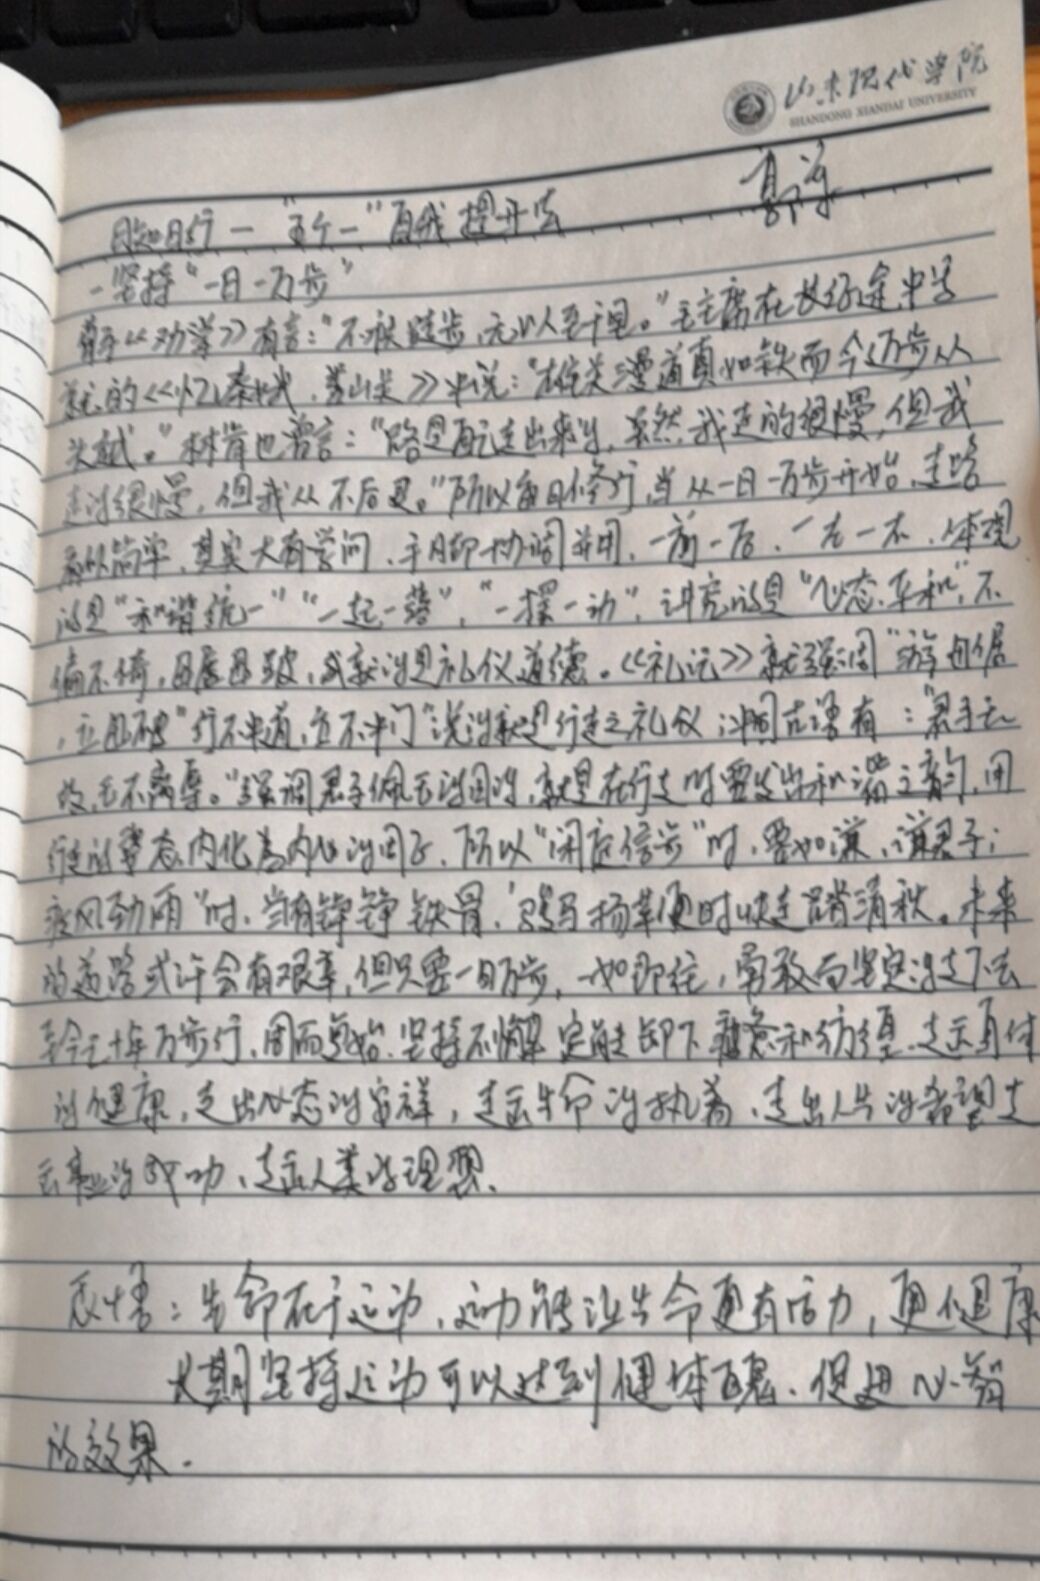 山东现代学院
SHANDONG XIANDAI UNIVERSITY
日知日行一"五个一"自我提升法
一坚持"一日一万步"
荀子《劝学》有言:"不积跬步,无以至千里。"毛主席在长征途中写
就的《忆秦娥·娄山关》中说:"雄关漫道真如铁而今迈步从
头越。"林肯也曾言:"路是走出来的,虽然我走的很慢,但我
走的很慢,但我从不后退。"所以每日修行,当从一日一万步开始,走路
看似简单,其实大有学问,手脚协调并用,一前一后,一左一右,体现
的是"和谐统一""一起一落","一摆一动",讲究的是"心态平和",不
偏不倚,成就的是礼仪道德。《礼记》就强调"游毋倨
,立毋跛""行不中道,立不中门"说的就是行走之礼仪,中国古语有:"君子无
故,玉不离身。"强调君子佩玉的同时,就是在行走时要发出和谐之韵,用
行走的姿态,内化为内心的因子,所以"闲庭信步"时,要如谦谦君子;
疾风劲雨"时,当有铮铮铁骨,"跃马扬鞭"时快走踏清秋。未来
的道路或许会有艰辛,但只要一日万步,一如即往,勇敢而坚定的走下去
万步行,周而复始,坚持不懈,定能卸下疲惫和彷徨,走出身体
的健康,走出心态的安祥,走出生命的执着,走出人生的希望走
出事业的成功,走出人类的理想.
感悟:生命在于运动,运动能让生命更有活力,更健康
长期坚持运动可以达到健体,促进心智
的效果.